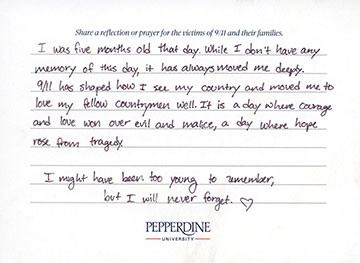 Share a reflection or prayer for the victims of 9/11 and their families.
I was five months old that day. While I don't have any
memory of this day, it has always moved me deeply.
9/11 has shaped how I see my country and moved me to
love my fellow countrymen well. It is a day where courage
and love won over evil and malice, a day where hope
rose from tragedy.
I might have been too young to remember,
but I will never forget. ♡
PEPPERDINE
UNIVERSITY